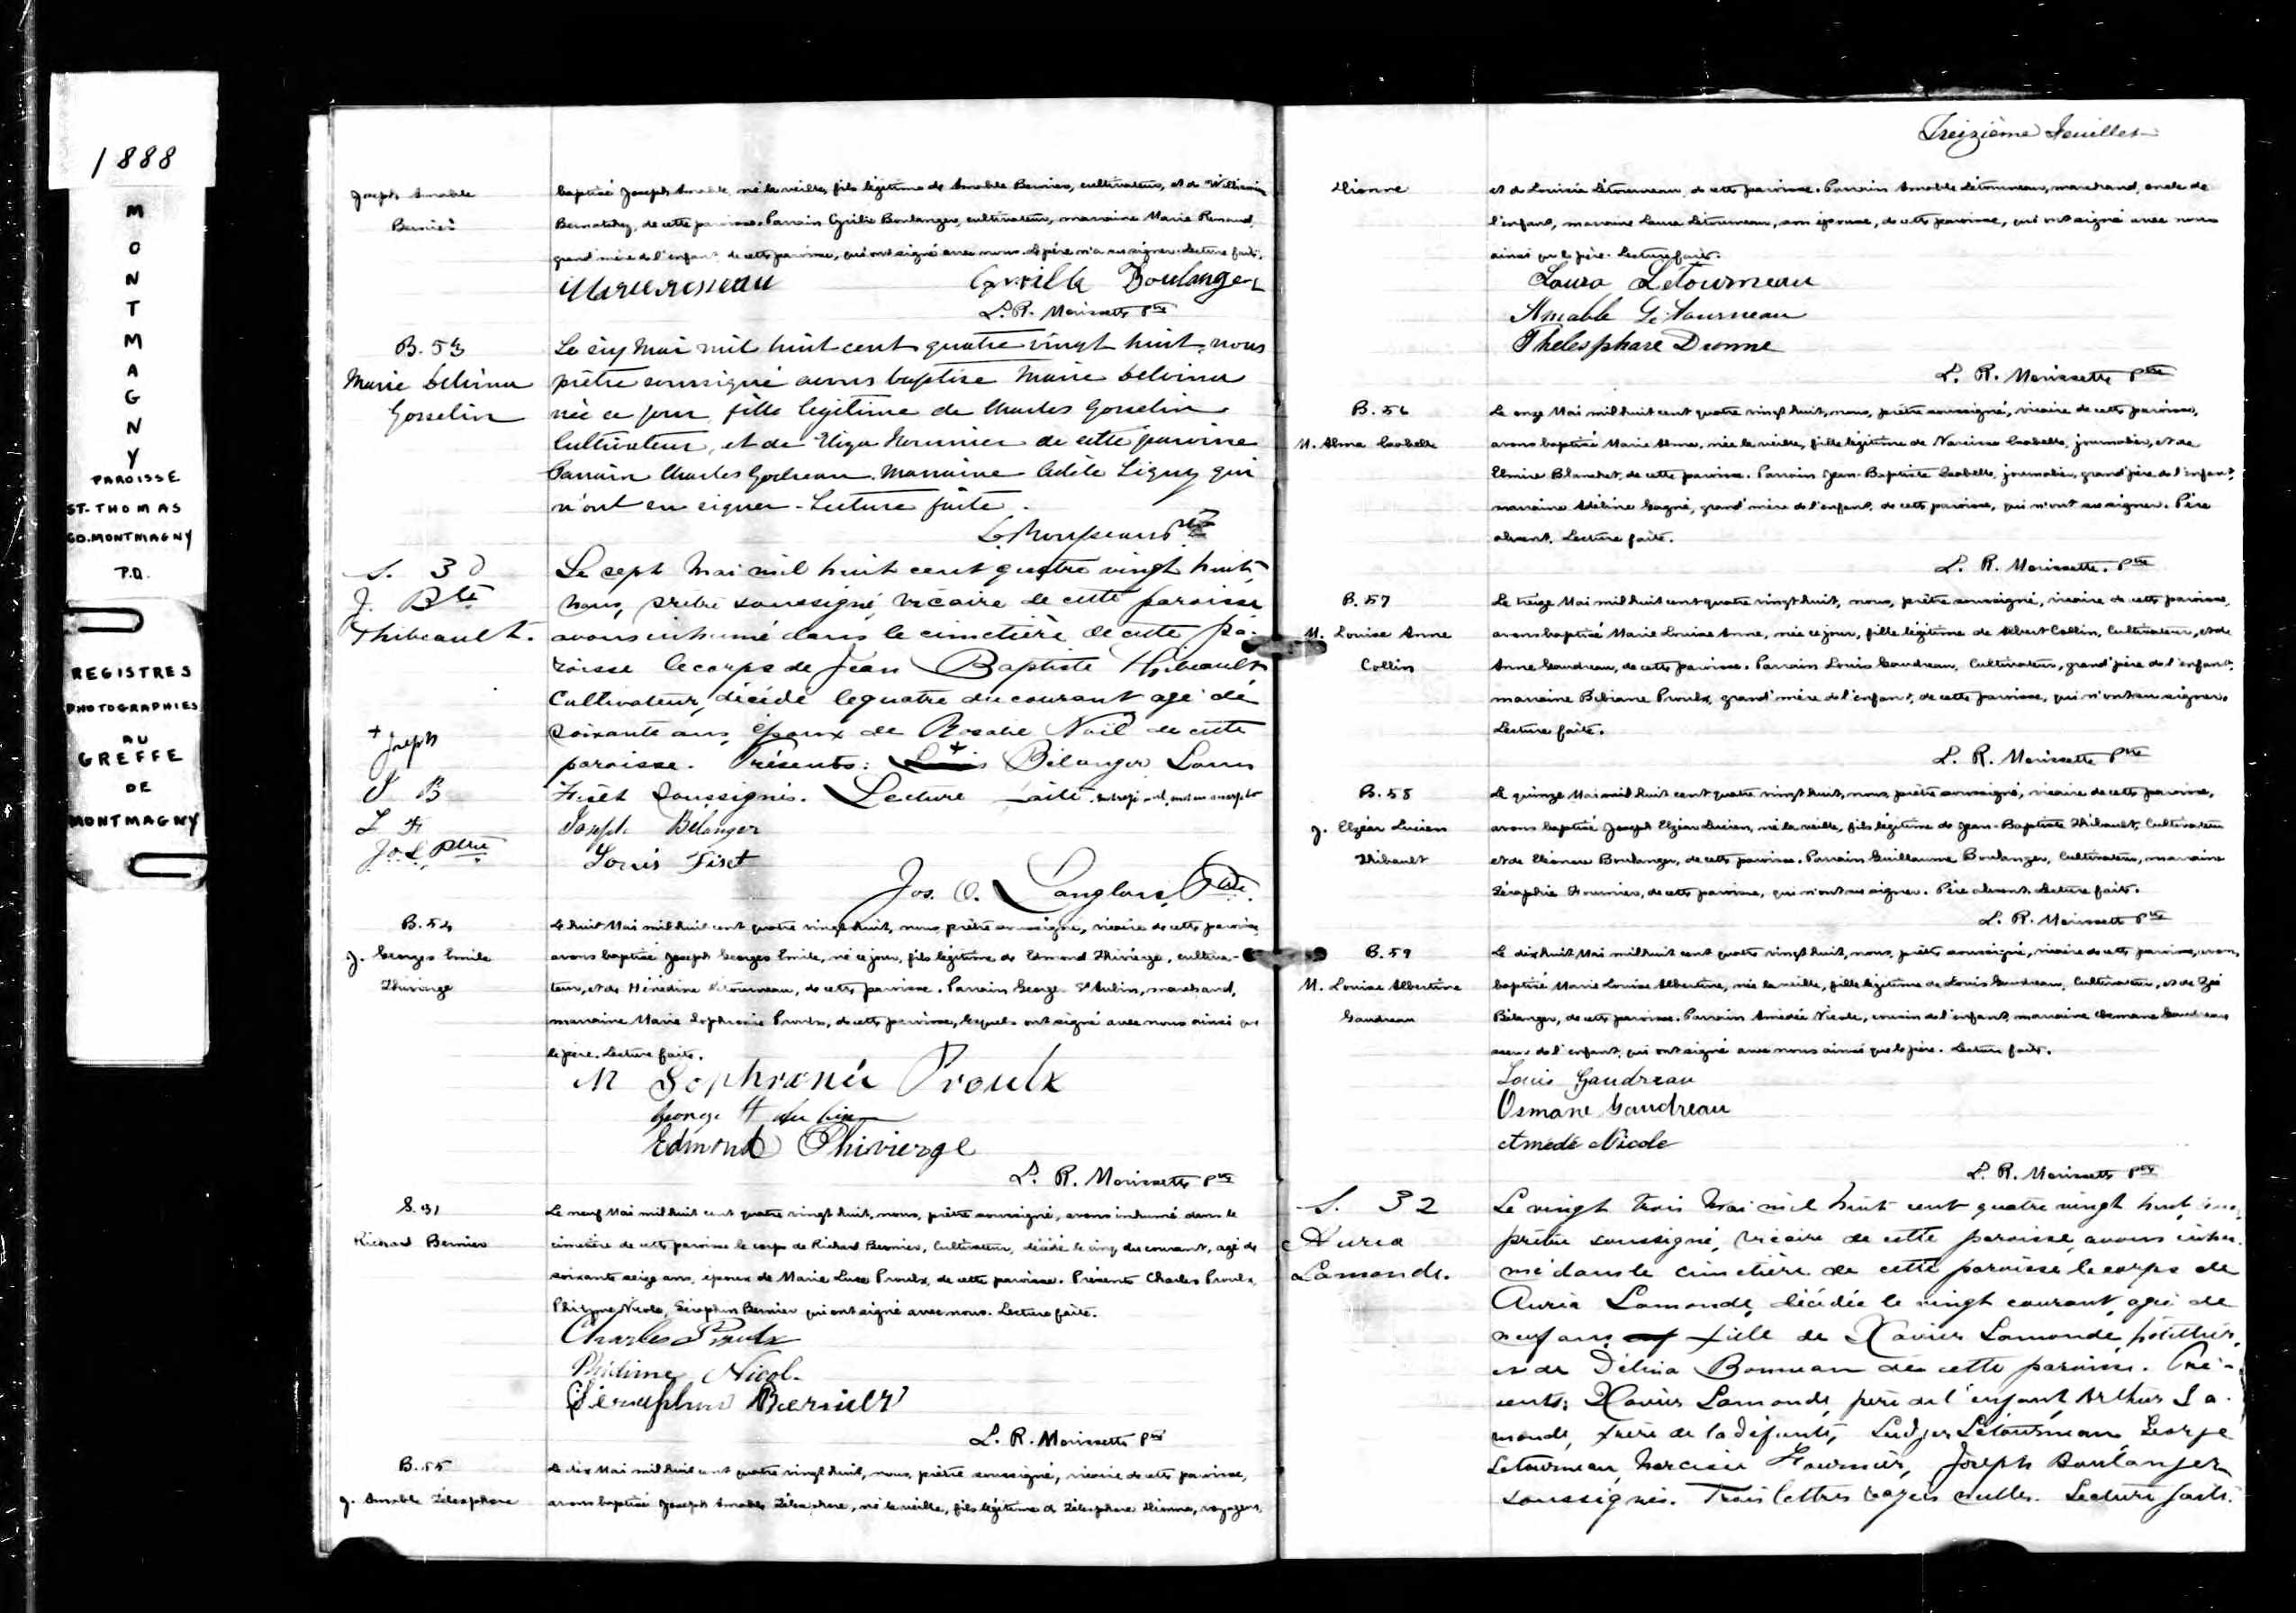 1888
M
O
N
T
M
A
G
N
Y
PAROISSE
ST. THOMAS
CO. MONTMAGNY
P.Q.
REGISTRES
PHOTOGRAPHIES
AU
GREFFE
DE
MONTMAGNY
Joseph Amable
Bernier
baptisé Joseph Amable, né la veille, fils légitime de Amable Bernier, cultivateur, et de
Bernatchez, de cette paroisse. Parrain Cyrille Boulanger, cultivateur, marraine Marie
grand'mère de l'enfant de cette paroisse, qui ont signé avec nous. Le père n'a su signer. Lecture faite.
Cyrille Boulanger
L. R. Morissette Ptre
B. 53
Marie Delvina
Gosselin
Le six Mai mil huit cent quatre vingt huit, nous
prêtre soussigné avons baptisé Marie Delvina
née ce jour, fille légitime de Charles Gosselin
Cultivateur, et de Eliza Fournier de cette paroisse
Parrain Charles Godreau. Marraine Adèle qui
n'ont su signer. Lecture faite.
S. 30
J. Bte
Thibeault.
Le sept Mai mil huit cent quatre vingt huit,
Nous, prêtre soussigné, vicaire de cette paroisse
avons inhumé dans le cimetière de cette pa-
roisse le corps de Jean Baptiste Thibeault
Cultivateur, décédé le quatre du courant agé de
soixante ans, époux de Rosalie Noël de cette
paroisse. Présents: Louis + Bélanger Louis
Fiset soussignés. Lecture faite.
+ Joseph
J B
L F
J. O. L. Ptre
Joseph Bélanger
Louis Fiset
Jos. O. Langlois, Ptre.
B. 54
J. Georges Emile
Thivierge
Le huit Mai mil huit cent quatre vingt huit, nous prêtre soussigné, vicaire de cette paroisse,
avons baptisé Joseph Georges Emile, né ce jour, fils légitime de Edmond Thivierge, cultiva-
teur, et de Hénédine Létourneau, de cette paroisse. Parrain George St Aubin, marchand,
marraine Marie Sophronie Proulx, de cette paroisse, lesquels ont signé avec nous ainsi que
le père. Lecture faite.
M Sophronie Proulx
George St Aubin
Edmond Thivierge
L. R. Morissette Ptre
S. 31
Richard Bernier
Le neuf Mai mil huit cent quatre vingt huit, nous, prêtre soussigné, avons inhumé dans le
cimetière de cette paroisse le corps de Richard Bernier, Cultivateur, décédé le cinq du courant, agé de
soixante seize ans, époux de Marie Luce Proulx, de cette paroisse. Présents Charles Proulx,
Nicole, Séraphin Bernier qui ont signé avec nous. Lecture faite.
Charles Proulx
Nicol
Séraphin Bernier
L. R. Morissette Ptre
B. 55
J. Amable Télesphore
Le dix Mai mil huit cent quatre vingt huit, nous, prêtre soussigné, vicaire de cette paroisse,
avons baptisé Joseph Amable Télesphore, né la veille, fils légitime de Télesphore Dionne, voyageur,
Treizième Feuillet
Dionne
et de Louisia Létourneau, de cette paroisse. Parrain Amable Létourneau, marchand, oncle de
l'enfant, marraine Laura Létourneau, son épouse, de cette paroisse, qui ont signé avec nous
ainsi que le père. Lecture faite.
Laura LeTourneau
Amable LeTourneau
Thelesphore Dionne
L. R. Morissette Ptre
B. 56
M. Alma Isabelle
Le onze Mai mil huit cent quatre vingt huit, nous, prêtre soussigné, vicaire de cette paroisse,
avons baptisé Marie Alma, née la veille, fille légitime de Narcisse Isabelle, journalier, et de
Elmire Blanchet, de cette paroisse. Parrain Jean-Baptiste Isabelle, journalier, grand'père de l'enfant,
marraine Adéline Gagné, grand'mère de l'enfant, de cette paroisse, qui n'ont su signer. Père
absent. Lecture faite.
L. R. Morissette. Ptre
B. 57
M. Louise Anne
Collin
Le treize Mai mil huit cent quatre vingt huit, nous, prêtre soussigné, vicaire de cette paroisse,
avons baptisé Marie Louise Anne, née ce jour, fille légitime de Albert Collin, Cultivateur, et de
Anne Gaudreau, de cette paroisse. Parrain Louis Gaudreau, Cultivateur, grand'père de l'enfant,
marraine Bibiane Proulx, grand'mère de l'enfant, de cette paroisse, qui n'ont su signer.
Lecture faite.
L. R. Morissette Ptre
B. 58
J. Elzéar Lucien
Thibault
Le quinze Mai mil huit cent quatre vingt huit, nous, prêtre soussigné, vicaire de cette paroisse,
avons baptisé Joseph Elzéar Lucien, né la veille, fils légitime de Jean-Baptiste Thibault, Cultivateur
et de Eléonore Boulanger, de cette paroisse. Parrain Guillaume Boulanger, Cultivateur, marraine
Séraphie Fournier, de cette paroisse, qui n'ont su signer. Père absent. Lecture faite.
L. R. Morissette Ptre
B. 59
M. Louise Albertine
Gaudreau
Le dix huit Mai mil huit cent quatre vingt huit, nous, prêtre soussigné, vicaire de cette paroisse, avons,
baptisé Marie Louise Albertine, née la veille, fille légitime de Louis Gaudreau, Cultivateur, et de Zoé
Bélanger, de cette paroisse. Parrain Amédée Nicole, cousin de l'enfant, marraine Osmane Gaudreau
soeur de l'enfant, qui ont signé avec nous ainsi que le père. Lecture faite.
Louis Gaudreau
Osmane Gaudreau
Amédé Nicole
L. R. Morissette Ptre
S. 32
Auria
Lamonde.
Le vingt trois Mai mil huit cent quatre vingt huit, nous,
prêtre soussigné, vicaire de cette paroisse, avons inhu-
mé dans le cimetière de cette paroisse le corps de
Auria Lamonde, décédée le vingt courant, agée de
neuf ans fille de Xavier Lamonde, hôtellier,
et de Délina Bonneau de cette paroisse. Pré-
sents: Xavier Lamonde, père de l'enfant, Arthur La-
monde, frère de la défunte, Ludger Létourneau, George
Letourneau, Narcisse Fournier, Joseph Boulanger
soussignés. Trois lettres rayées nulles. Lecture faite.